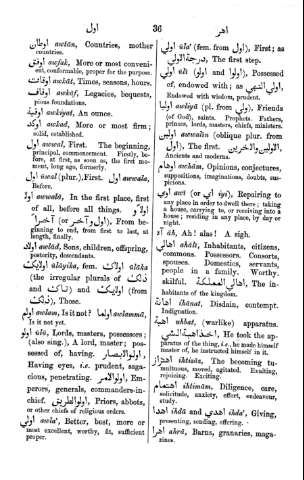 اول
36
اهر
اوطان awtān, Countries, mother
countries.
اوفق awfak, More or most conveni-
ent, conformable, proper for the purpose.
اوقات awkāt, Times, seasons, hours.
اوقاف awkāf, Legacies, bequests,
pious foundations.
اوقيه awkiyat, An ounce.
اوكد awkad, More or most firm;
solid, established.
اول awwal, First. The beginning,
principal, commencement. Firstly, be-
fore, at first, as soon as, the first mo-
ment, long ago, formerly.
اول āwal (plur.), First. اول awwala,
Before.
اولا awwalā, In the first place, first
of all, before all things. اولا و
آخرا (or اول و آخر), From be-
ginning to end, from first to last, at
length, finally.
اولاد awlād, Sons, children, offspring,
posterity, descendants.
اولايك ūlāyika, fem. اولاك ūlāka
(the irregular plurals of ذلك
and تاك) and اولايك (from
ذلك), Those.
اولم awlam, Is it not? اولما awlammā,
Is it not yet.
اولو ūlū, Lords, masters, possessors;
(also sing.), A lord, master; pos-
sessed of, having. اولو الابصار,
Having eyes, i.e. prudent, saga-
cious, penetrating. اولو الامر, Em-
perors, generals, commanders-in-
chief. اولو الطريق, Priors, abbots,
or other chiefs of religious orders.
اولي awla', Better, best, more or
most excellent, worthy, fit, sufficient
proper.
اولي ūla' (fem. from اول), First; as
درجة الاولي, The first step.
اولي ūlī (اولو and اولا), Possessed
of, endowed with; as اولي النهي,
Endowed with wisdom, prudent.
اوليا awliyā (pl. from ولي), Friends
(of God), saints. Prophets. Fathers,
princes, lords, masters, chiefs, ministers.
اولين awwalīn (oblique plur. from
اول), The first. اولين و آخرين,
Ancients and moderns.
اوهام awhām, Opinions, conjectures,
suppositions, imaginations, doubts, sus-
picions.
اوي awī (or اي iyī), Repairing to
any place in order to dwell there; taking
a house, carrying to, or receiving into a
house; residing in any place, by day or
night.
آه āh, Ah! alas! A sigh.
اهالي ahālī, Inhabitants, citizens,
commons. Possessors. Consorts,
spouses. Domestics, servants,
people in a family. Worthy.
skilful. اهالي المملكة, The in-
habitants of the kingdom.
اهانة ihānat, Disdain, contempt.
Indignation.
اهبة uhbat, (warlike) apparatus.
اخذ اهبته, He took the ap-
paratus of the thing, i.e. he made himself
master of, he instructed himself in it.
اهتزاز ihtizāz, The becoming tu-
multuous, moved, agitated. Exulting,
rejoicing. Exciting.
اهتمام ihtimām, Diligence, care,
solicitude, anxiety, effort, endeavour,
study.
اهدا ihdā and اهدي ihda', Giving,
presenting, sending, offering.
اهرا ahrā, Barns, granaries, maga-
zines.